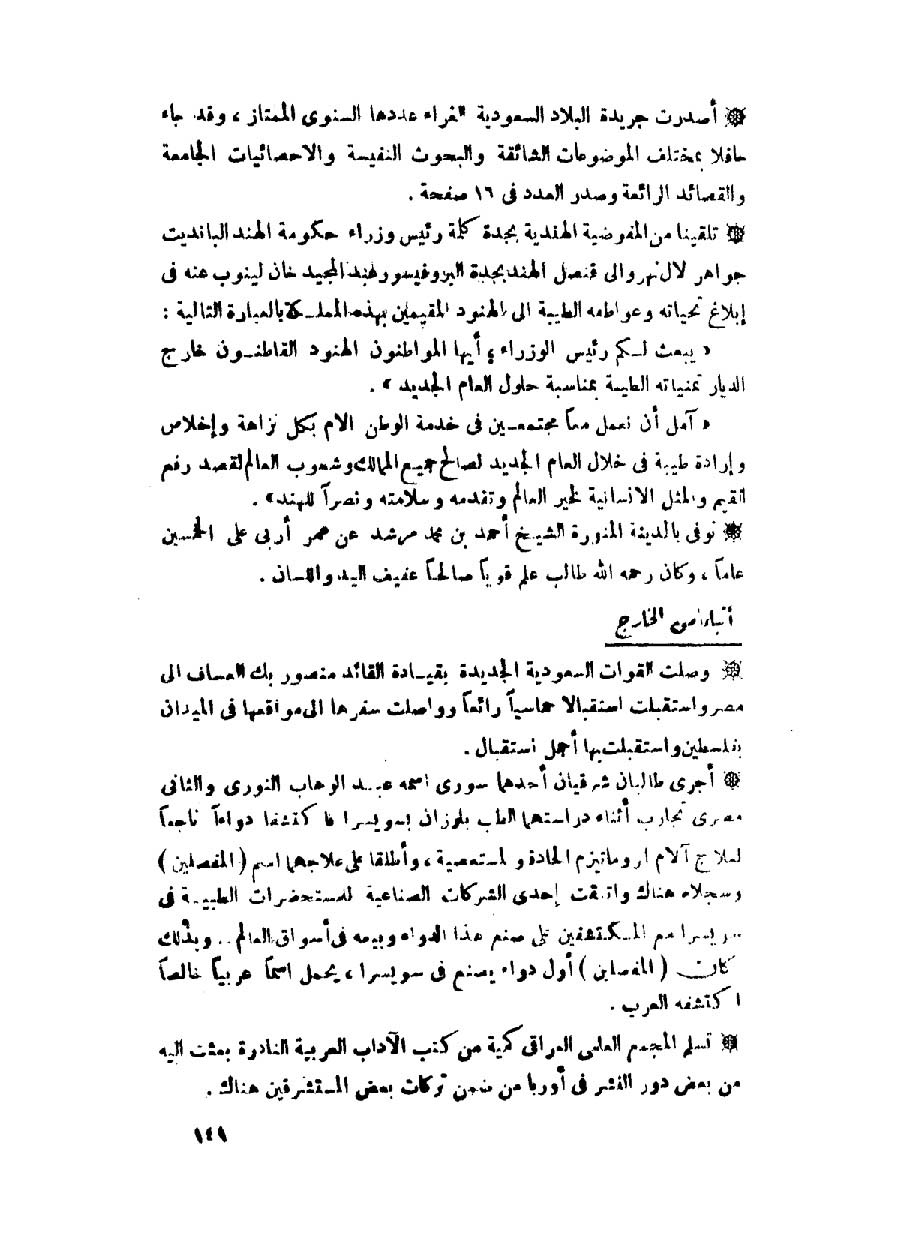 أصدرت جريدة البلاد السعودية الغراء عددها السنوى الممتاز ، وقد جاء
حافلا بمختلف الموضوعات الشائقة والبحوث النفيسة والاحصائيات الجامعة
والقصائد الرائعة وصدر العدد فى ١٦ صفحة .
تلقينا من المفوضية الهندية بجدة كلمة رئيس وزراء حكومة الهند البانديت
جواهر لال نهرو الى قنصل الهند بجدة البروفيسور عبد المجيد خان لينوب عنه فى
إبلاغ تحياته وعواطفه الطيبة الى الهنود المقيمين بهذه المملكة بالعبارة التالية :
« يبعث لكم رئيس الوزراء ، أيها المواطنون الهنود القاطنون خارج
الديار تمنياته الطيبة بمناسبة حلول العام الجديد » .
« آمل أن نعمل معاً مجتمعين فى خدمة الوطن الام بكل نزاهة وإخلاص
وإرادة طيبة فى خلال العام الجديد لصالح جميع الممالك وشعوب العالم لقصد رفع
القيم والمثل الانسانية لخير العالم وتقدمه وسلامته ونصراً للهند » .
توفى بالمدينة المنورة الشيخ أحمد بن محمد مرشد عن عمر أربى على الخمسين
عاماً ، وكان رحمه الله طالب علم قوياً صالحاً عفيف اليد واللسان .
أنباء من الخارج
وصلت القوات السعودية الجديدة بقيادة القائد منصور بك العساف الى
مصر واستقبلت استقبالا حماسياً رائعاً وواصلت سفرها الى مواقعها فى الميدان
بفلسطين واستقبلت بها أجمل استقبال .
أجرى طالبان شرقيان أحدهما سورى اسمه عبد الوهاب النورى والثانى
مصرى تجارب أثناء دراستهما الطب بلوزان بسويسرا فاكتشفا دواءاً ناجعاً
لعلاج آلام الروماتيزم الحادة والمستعصية ، وأطلقا على علاجهما اسم ( المفصلين )
وسجلاه هناك واتفقت إحدى الشركات الصناعية للمستحضرات الطبية فى
سويسرا مع المكتشفين على صنع هذا الدواء وبيعه فى أسواق العالم .. وبذلك
كان ( المفصلين ) أول دواء يصنع فى سويسرا ، يحمل اسماً عربياً خالصاً
اكتشفه العرب .
تسلم المجمع العلمى العراقى كمية من كتب الآداب العربية النادرة بعثت اليه
من بعض دور النشر فى أوربا من ضمن تركات بعض المستشرقين هناك .
١٤١